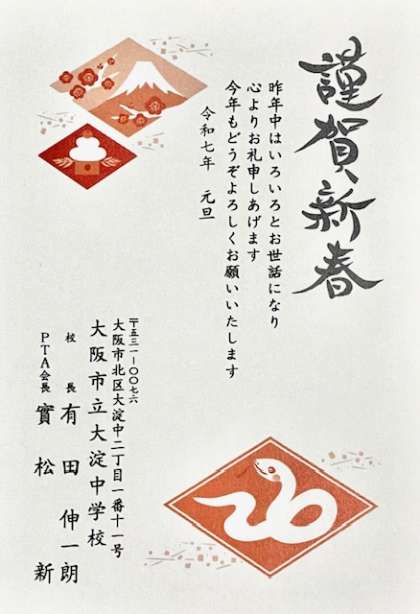 謹賀新春
昨年中はいろいろとお世話になり
心よりお礼申しあげます
今年もどうぞよろしくお願いいたします
令和七年　元旦
〒五三一-〇〇七六
大阪市北区大淀中二丁目一番十一号
大阪市立大淀中学校
校　長　有　田　伸一朗
PTA会長　實　松　　新